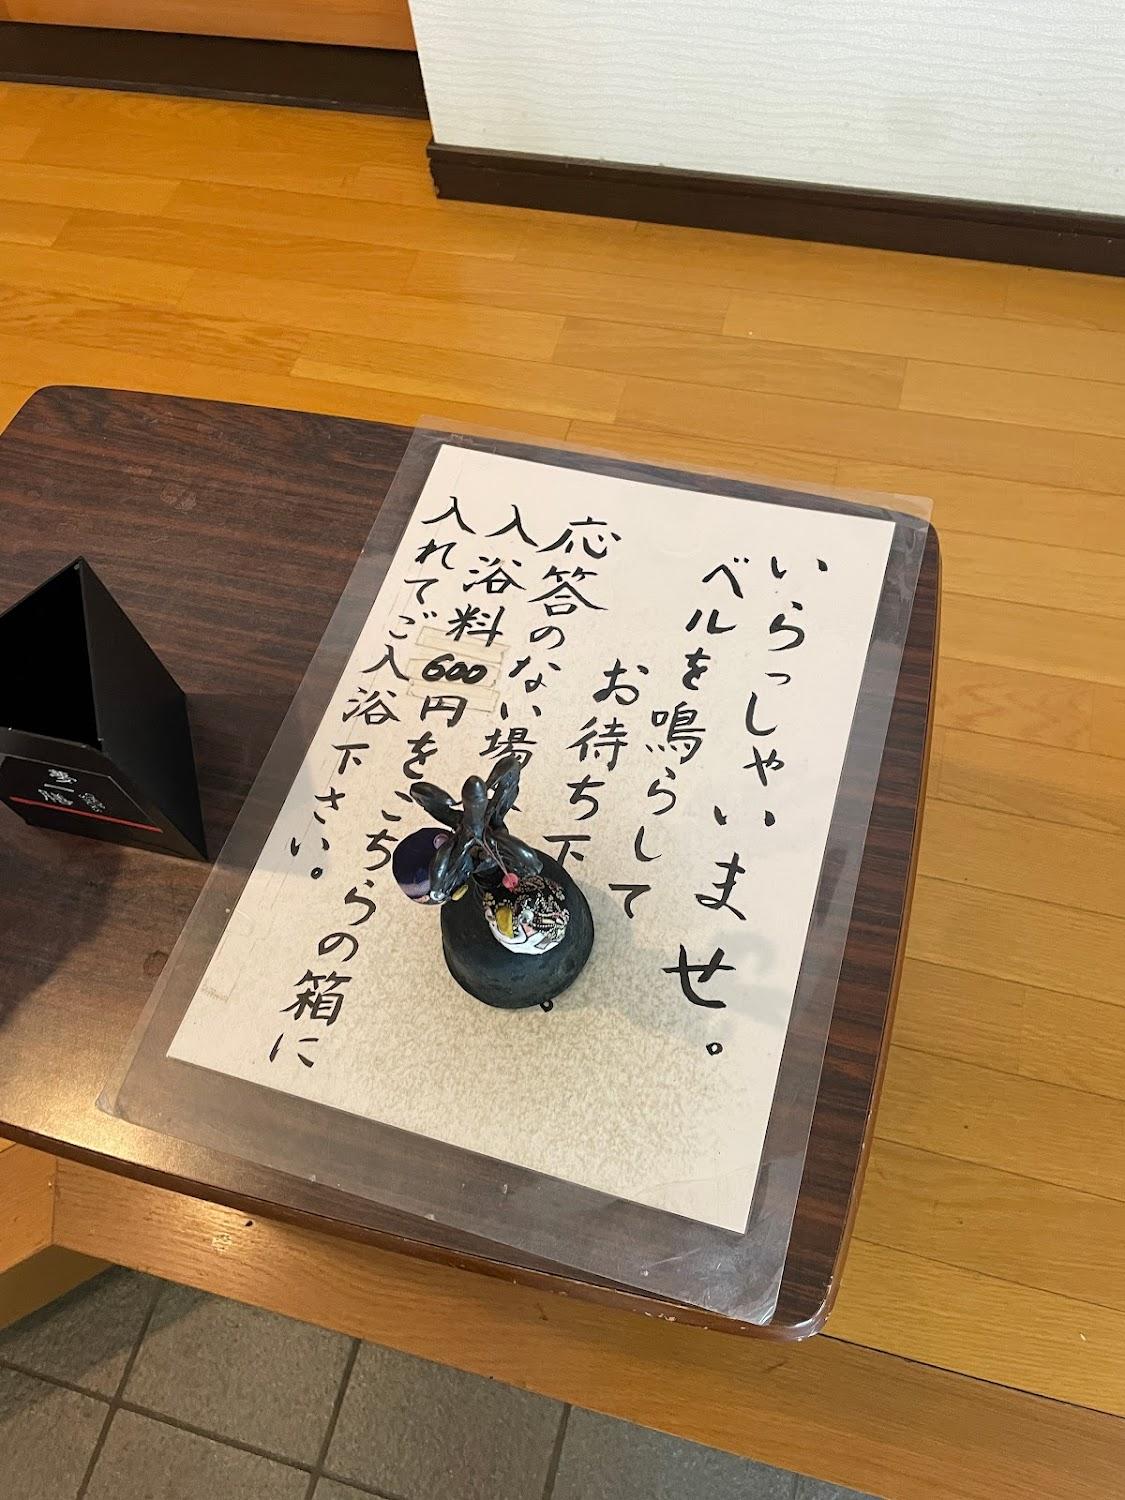 いらっしゃいませ。
ベルを鳴らして
お待ち下
応答のない場
入浴料600円をこちらの箱に
入れてご入浴下さい。